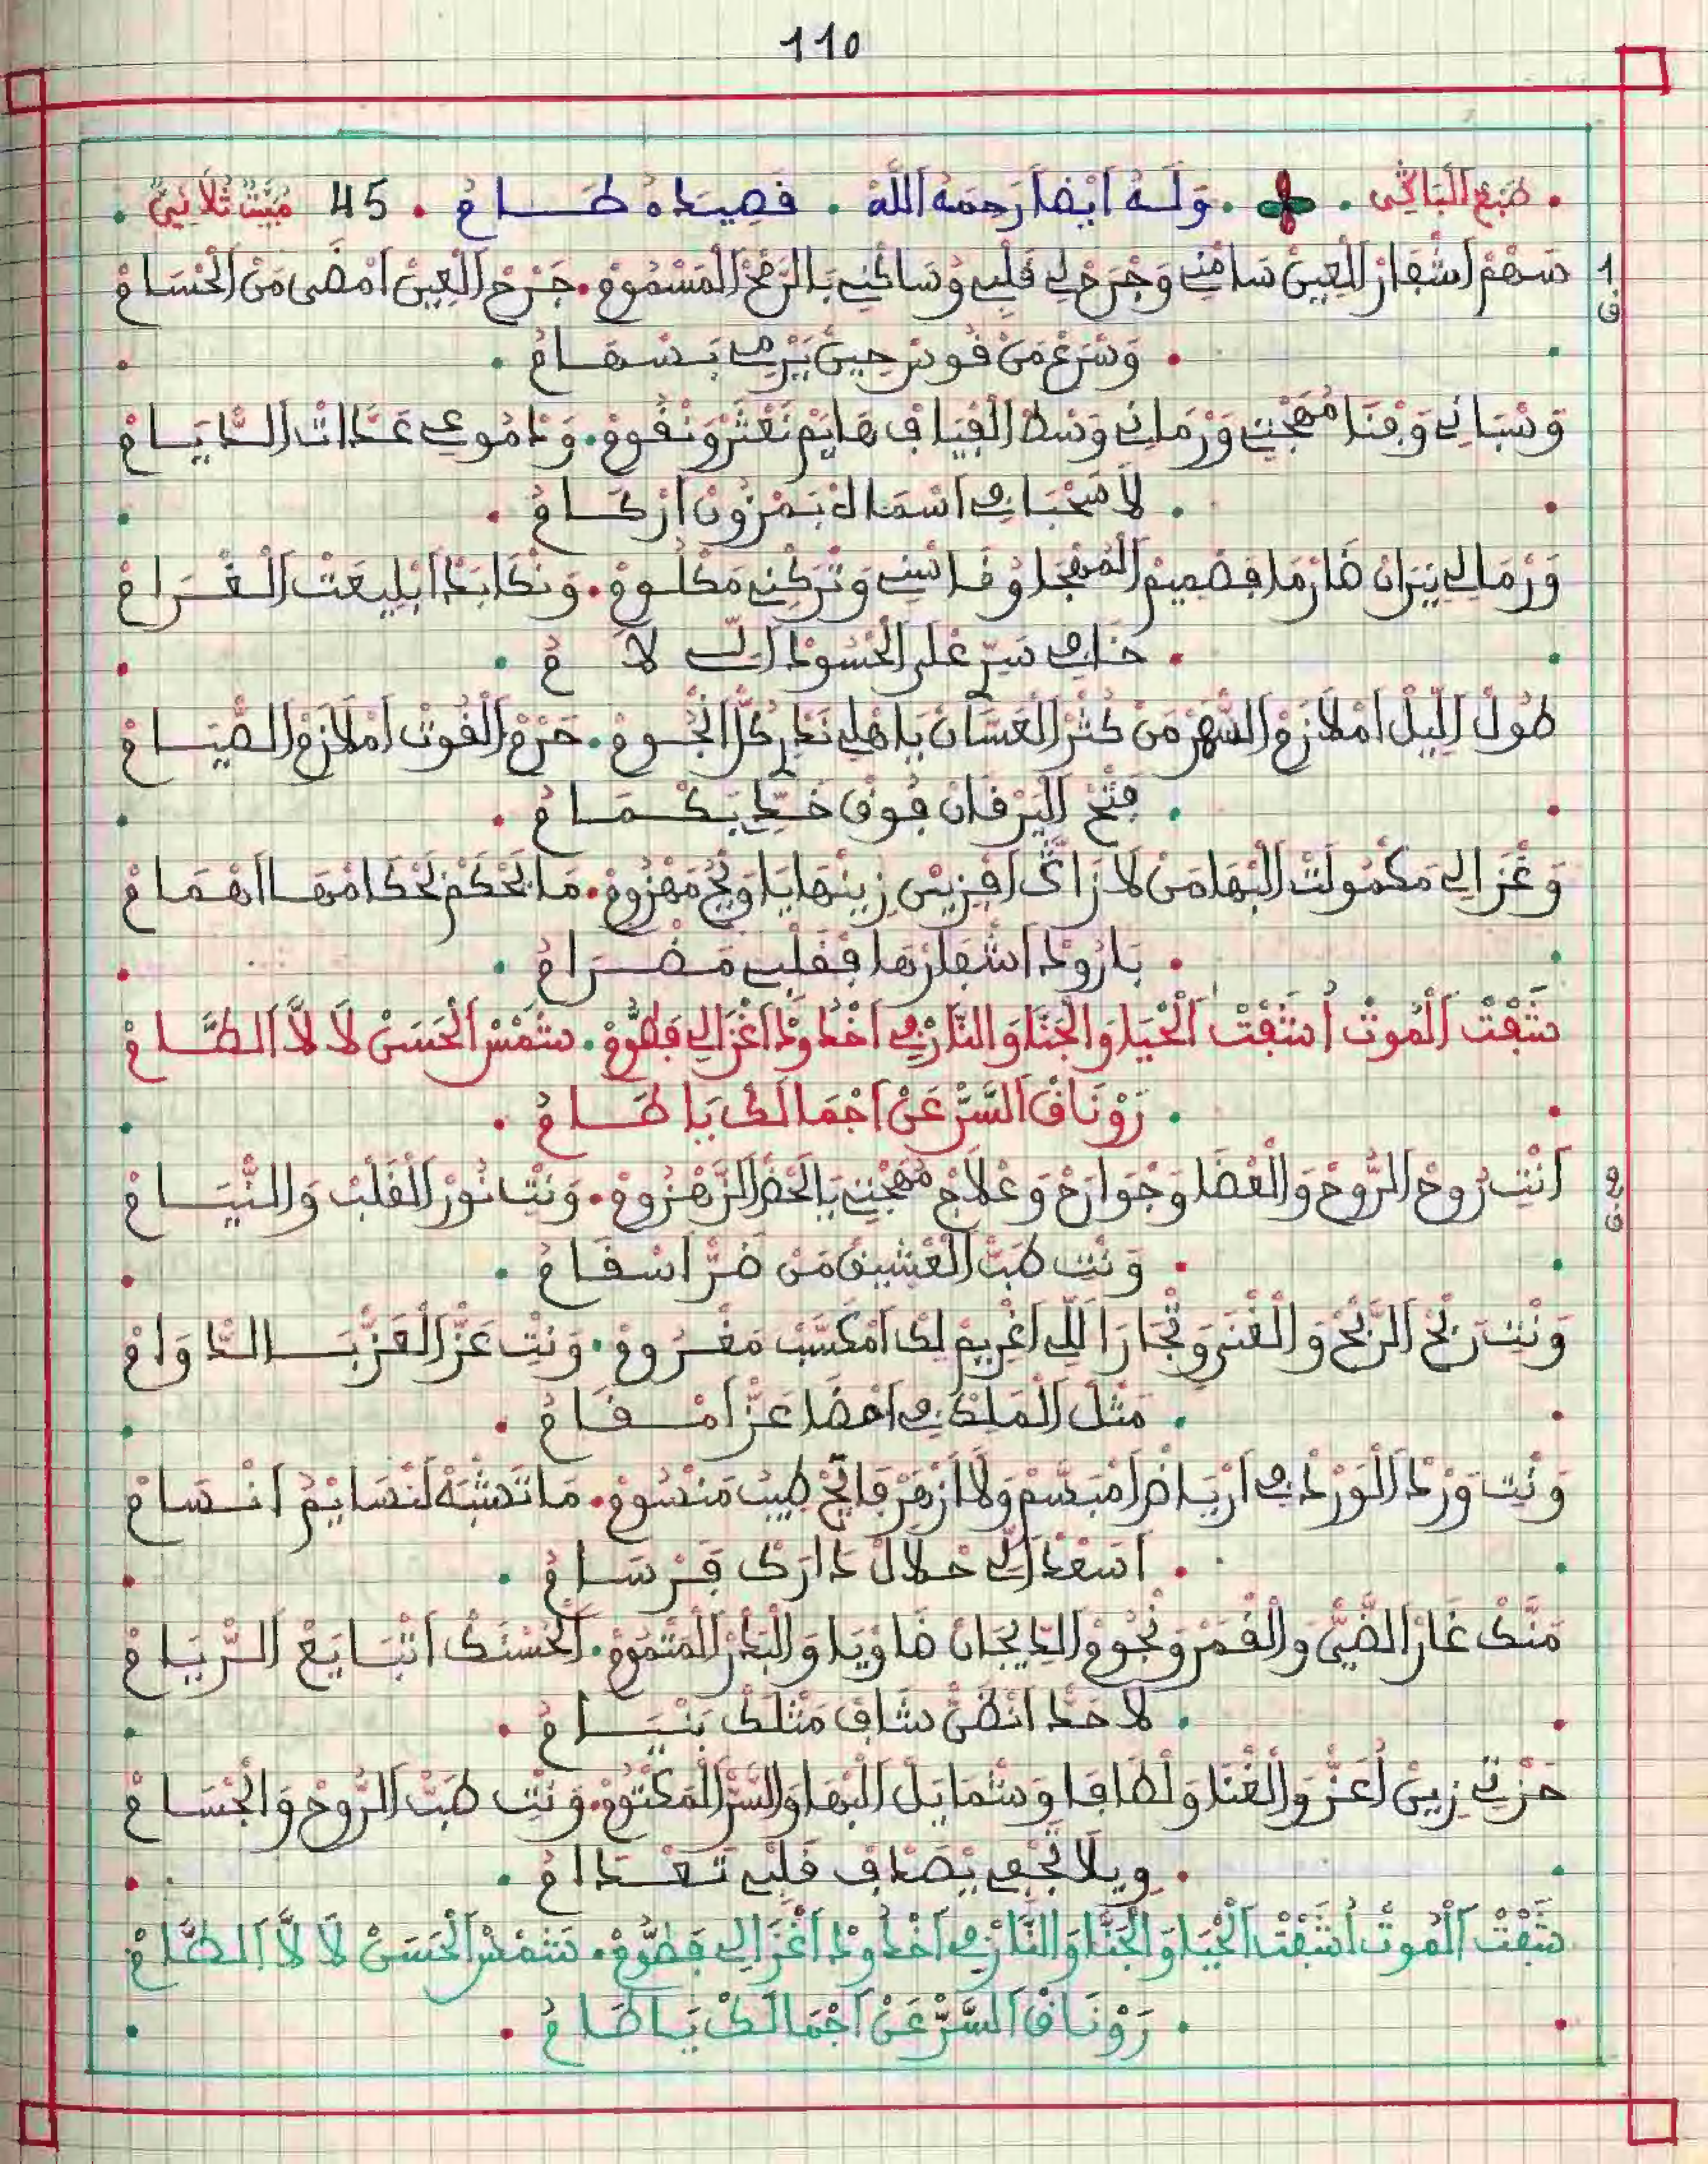 110
. طبع الباكي . وله أيضا رحمه الله . قصيدة طـــام . 45 مبيت ثلاثي .
1 سهم اشفار العين سامني وجرح لي قلبي وساكني بالرمح المسموم . جرح العين امضى من الحسام
ق
. وسرع من قوس حين يرمي بسهام .
وسباني وفنا مهجتي ورماني وسط الفيافي هايم نعثر ونقوم . ودموعي عدات الديام
. لا سحبا في اسمال بمزون اركام .
ورمالي نيران ضارما فصميم المهجا وقاسني وتركني مكلوم . ونكابد ابليعت الغرام
. خافي سري على الحسود الي لام .
طول الليل املازم السهر من كثر العسان يا هلي ندارك النجوم . حرم القوت املازم الصيام
. فتح اليرقان فوق خدي بكمام .
وغزالي مكمولت البها من لا زاك افزين زينها يا ويح مهزوم . ما يحكم لحكامها اهمام
. بارود اشفارها فقلبي مضرام .
شفت الموت أشفت الحيا والجنا والنار في اخدود اغزالي فطوم . شمس الحسن لا لا الطام
. رونق السر عن اجمالك يا طام .
2 انت روح الروح والعضا وجوارح وعلاج مهجتي يا لحض الزهزوم . ونت نور القلب والنيام
ق
. ونت طب العشيق من ضر اسقام .
ونت ربح الربح والغنى وتجارا للي اغريم لك امكسب مغروم . ونت عز العز بالدوام
. مثل الملك في احضا عز امقام .
ونت ورد الورد في ارياض امبسم ولا ازهر فايح طيب منسوم . ما تشبه لنسايم انسام
. اسعد الي حلال دارك فرسام .
منك غار الضي والقمر ونجوم الديجان ضاويا والبدر المتموم . الحسنك اتبايع الريام
. لا حد انظن شاف مثلك بنيام .
حزتي زين أعز والغنا ولطافا وشمايل البها والسر المكتوم . ونت طب الروح والجسام
. ويلا تجفي يصدف قلبي تعدام .
شفت الموت أشفت الحيا والجنا والنار في اخدود اغزالي فطوم . شمس الحسن لا لا الطام
. رونق السر عن اجمالك يا طام .